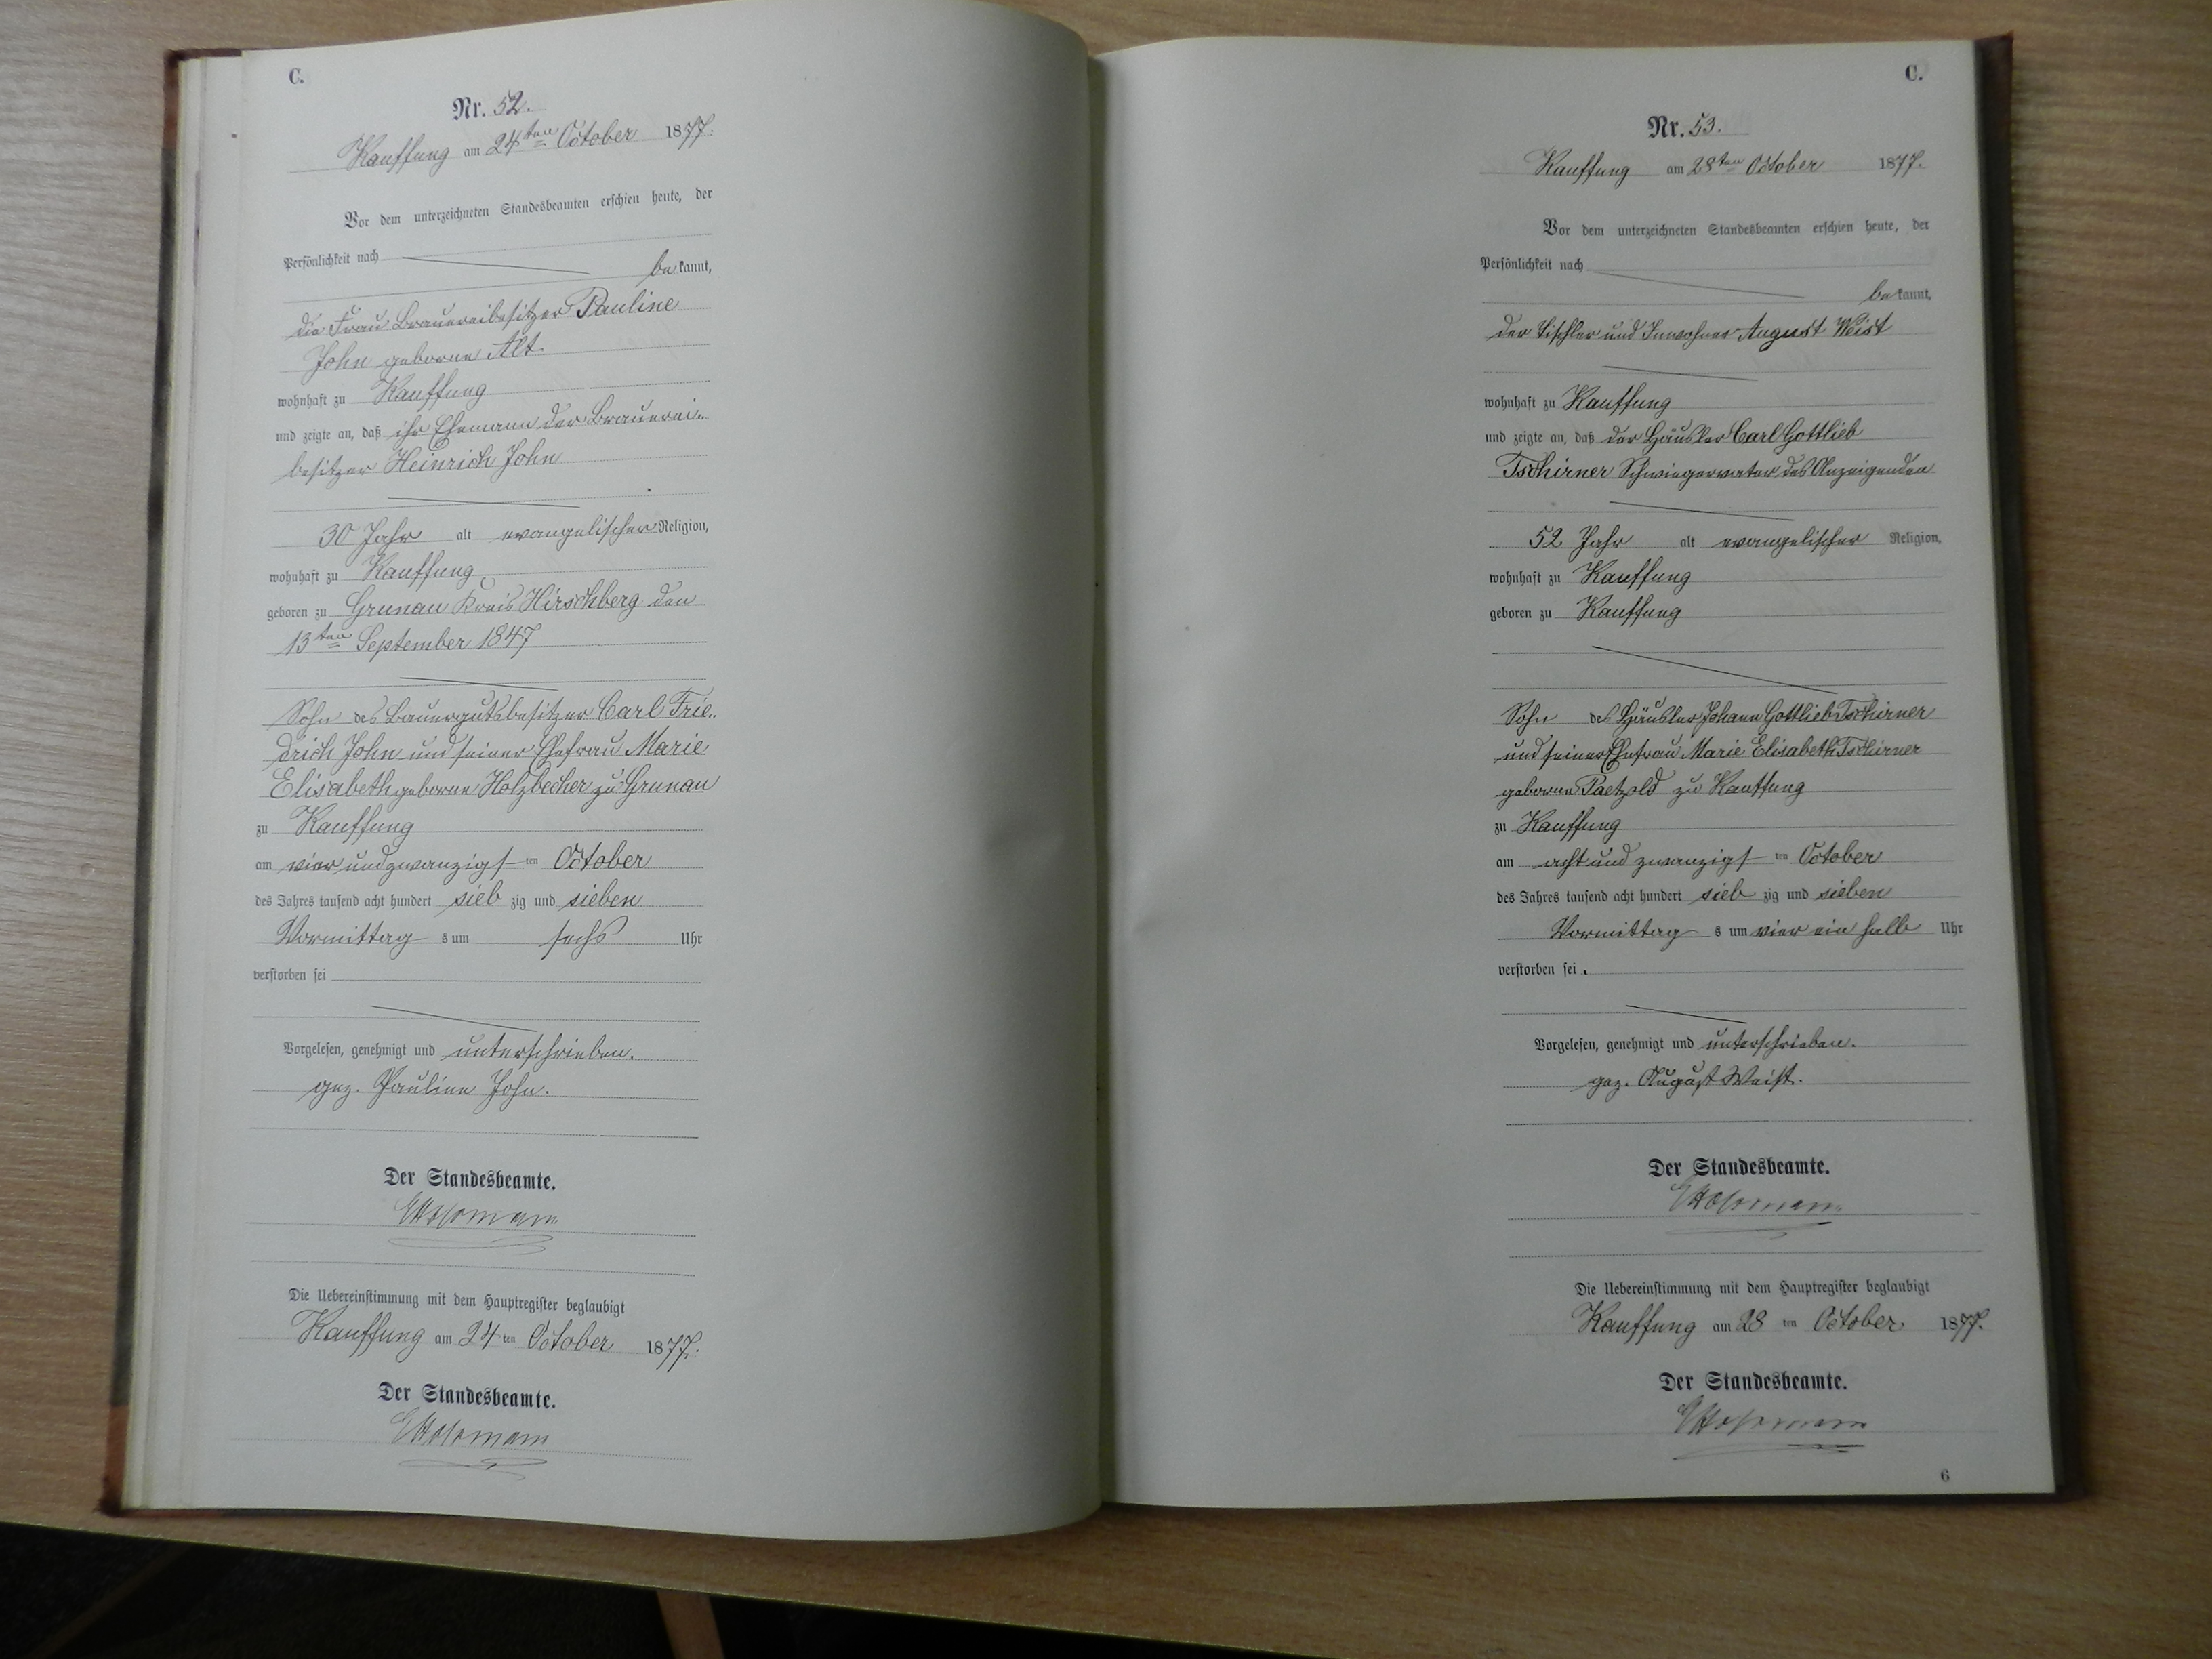 C.
Nr. 52.
Kauffung am 24ten October 1877.
Vor dem unterzeichneten Standesbeamten erschien heute, der
Persönlichkeit nach
bekannt,
die Frau Brauereibesitzer Pauline
John geborne Alt.
wohnhaft zu Kauffung
und zeigte an, daß ihr Ehemann der Brauerei-
besitzer Heinrich John
30 Jahr alt evangelischer Religion,
wohnhaft zu Kauffung
geboren zu Grunau Kreis Hirschberg den
13ten September 1847
Sohn des Bauergutsbesitzer Carl Frie-
drich John und seiner Ehefrau Marie
Elisabeth geborne Holzbecher zu Grunau
zu Kauffung
am vier und zwanzigsten October
des Jahres tausend acht hundert siebzig und sieben
Vormittags um sechs Uhr
verstorben sei
Vorgelesen, genehmigt und unterschrieben.
gez. Pauline John.
Der Standesbeamte.
Die Uebereinstimmung mit dem Hauptregister beglaubigt
Kauffung am 24ten October 1877.
Der Standesbeamte.
C.
Nr. 53.
Kauffung am 28ten October 1877.
Vor dem unterzeichneten Standesbeamten erschien heute, der
Persönlichkeit nach
bekannt,
der Tischler und Inwohner August Weist
wohnhaft zu Kauffung
und zeigte an, daß der Häusler Carl Gottlieb
Tschirner Schwiegervater des Anzeigenden
52 Jahr alt evangelischer Religion,
wohnhaft zu Kauffung
geboren zu Kauffung
Sohn des Häusler Johann Gottlieb Tschirner
und seiner Ehefrau Marie Elisabeth Tschirner
geborne Paetzold zu Kauffung
zu Kauffung
am acht und zwanzigsten October
des Jahres tausend acht hundert siebzig und sieben
Vormittags um vier ein halb Uhr
verstorben sei.
Vorgelesen, genehmigt und unterschrieben.
gez. August Weist.
Der Standesbeamte.
Die Uebereinstimmung mit dem Hauptregister beglaubigt
Kauffung am 28ten October 1877.
Der Standesbeamte.
6